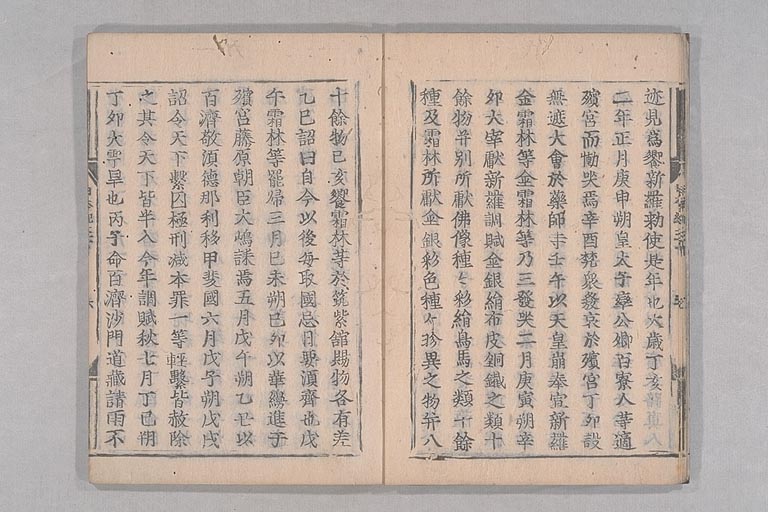 迹見爲饗新羅勅使是年也太歳丁亥
二年正月庚申朔皇太子率公卿百寮人等適
殯宮而慟哭焉辛酉梵衆發哀於殯宮丁卯設
無遮大會於藥師寺壬午以天皇崩奉宣新羅
金霜林等金霜林等乃三發哭二月庚寅朔辛
卯大宰獻新羅調賦金銀絹布皮銅鐵之類十
餘物并別所獻佛像種々彩絹鳥馬之類十餘
種及霜林所獻金銀彩色種々珍異之物并八
十餘物己亥饗霜林等於筑紫館賜物各有差
乙巳詔曰自今以後毎取國忌日要須齊也戊
午霜林等罷歸三月己未朔己卯以華縵進于
殯宮藤原朝臣大嶋誄焉五月戊午朔乙丑以
百濟敬須德那利移甲斐國六月戊子朔戊戌
詔令天下繫囚極刑減本罪一等輕繫皆赦除
之其令天下皆半入今年調賦秋七月丁巳朔
丁卯大雩旱也丙子命百濟沙門道藏請雨不